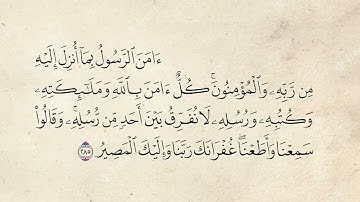 ءَامَنَ ٱلرَّسُولُ بِمَآ أُنزِلَ إِلَيْهِ
مِن رَّبِّهِۦ وَٱلْمُؤْمِنُونَ ۚ كُلٌّ ءَامَنَ بِٱللَّهِ وَمَلَـٰٓئِكَتِهِۦ
وَكُتُبِهِۦ وَرُسُلِهِۦ لَا نُفَرِّقُ بَيْنَ أَحَدٍ مِّن رُّسُلِهِۦ ۚ وَقَالُوا۟
سَمِعْنَا وَأَطَعْنَا ۖ غُفْرَانَكَ رَبَّنَا وَإِلَيْكَ ٱلْمَصِيرُ ٢٨٥